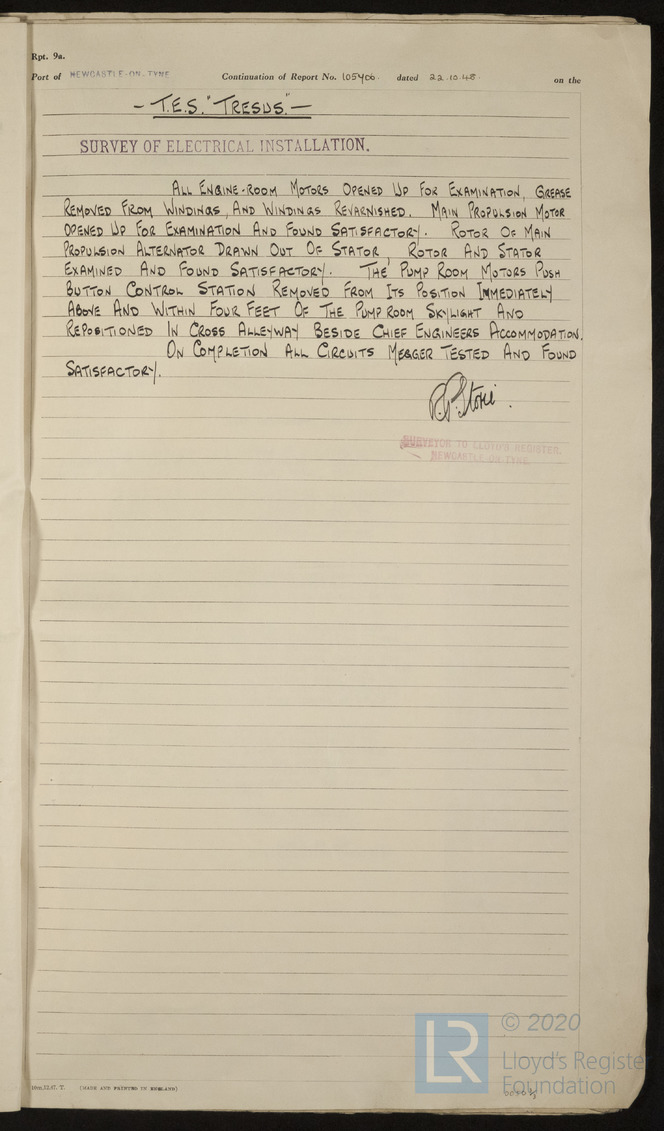 Rpt. 9a.
Port of NEWCASTLE-ON-TYNE Continuation of Report No. 105406. dated 22.10.48. on the
- T.E.S. "TRESUS." -
SURVEY OF ELECTRICAL INSTALLATION.
ALL ENGINE-ROOM MOTORS OPENED UP FOR EXAMINATION, GREASE
REMOVED FROM WINDINGS, AND WINDINGS REVARNISHED. MAIN PROPULSION MOTOR
OPENED UP FOR EXAMINATION AND FOUND SATISFACTORY. ROTOR OF MAIN
PROPULSION ALTERNATOR DRAWN OUT OF STATOR, ROTOR AND STATOR
EXAMINED AND FOUND SATISFACTORY. THE PUMP ROOM MOTORS PUSH
BUTTON CONTROL STATION REMOVED FROM ITS POSITION IMMEDIATELY
ABOVE AND WITHIN FOUR FEET OF THE PUMP ROOM SKYLIGHT AND
REPOSITIONED IN CROSS ALLEYWAY BESIDE CHIEF ENGINEERS ACCOMMODATION.
ON COMPLETION ALL CIRCUITS MEGGER TESTED AND FOUND
SATISFACTORY.
SURVEYOR TO LLOYD'S REGISTER.
NEWCASTLE-ON-TYNE
LR © 2020
Lloyd's Register
Foundation
(MADE AND PRINTED IN ENGLAND)